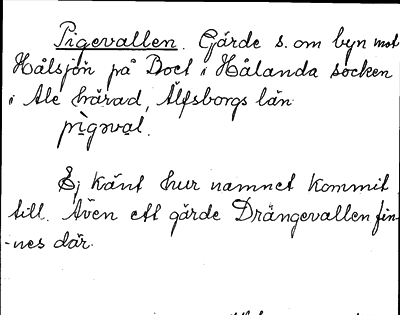 Pigevallen. Gärde s. om byn mot
Hålsjön på Boet i Hålanda socken
i Ale härad, Älfsborgs län
pigəval.
Ej känt hur namnet kommit
till. Även ett gärde Drängevallen fin-
-nes där.